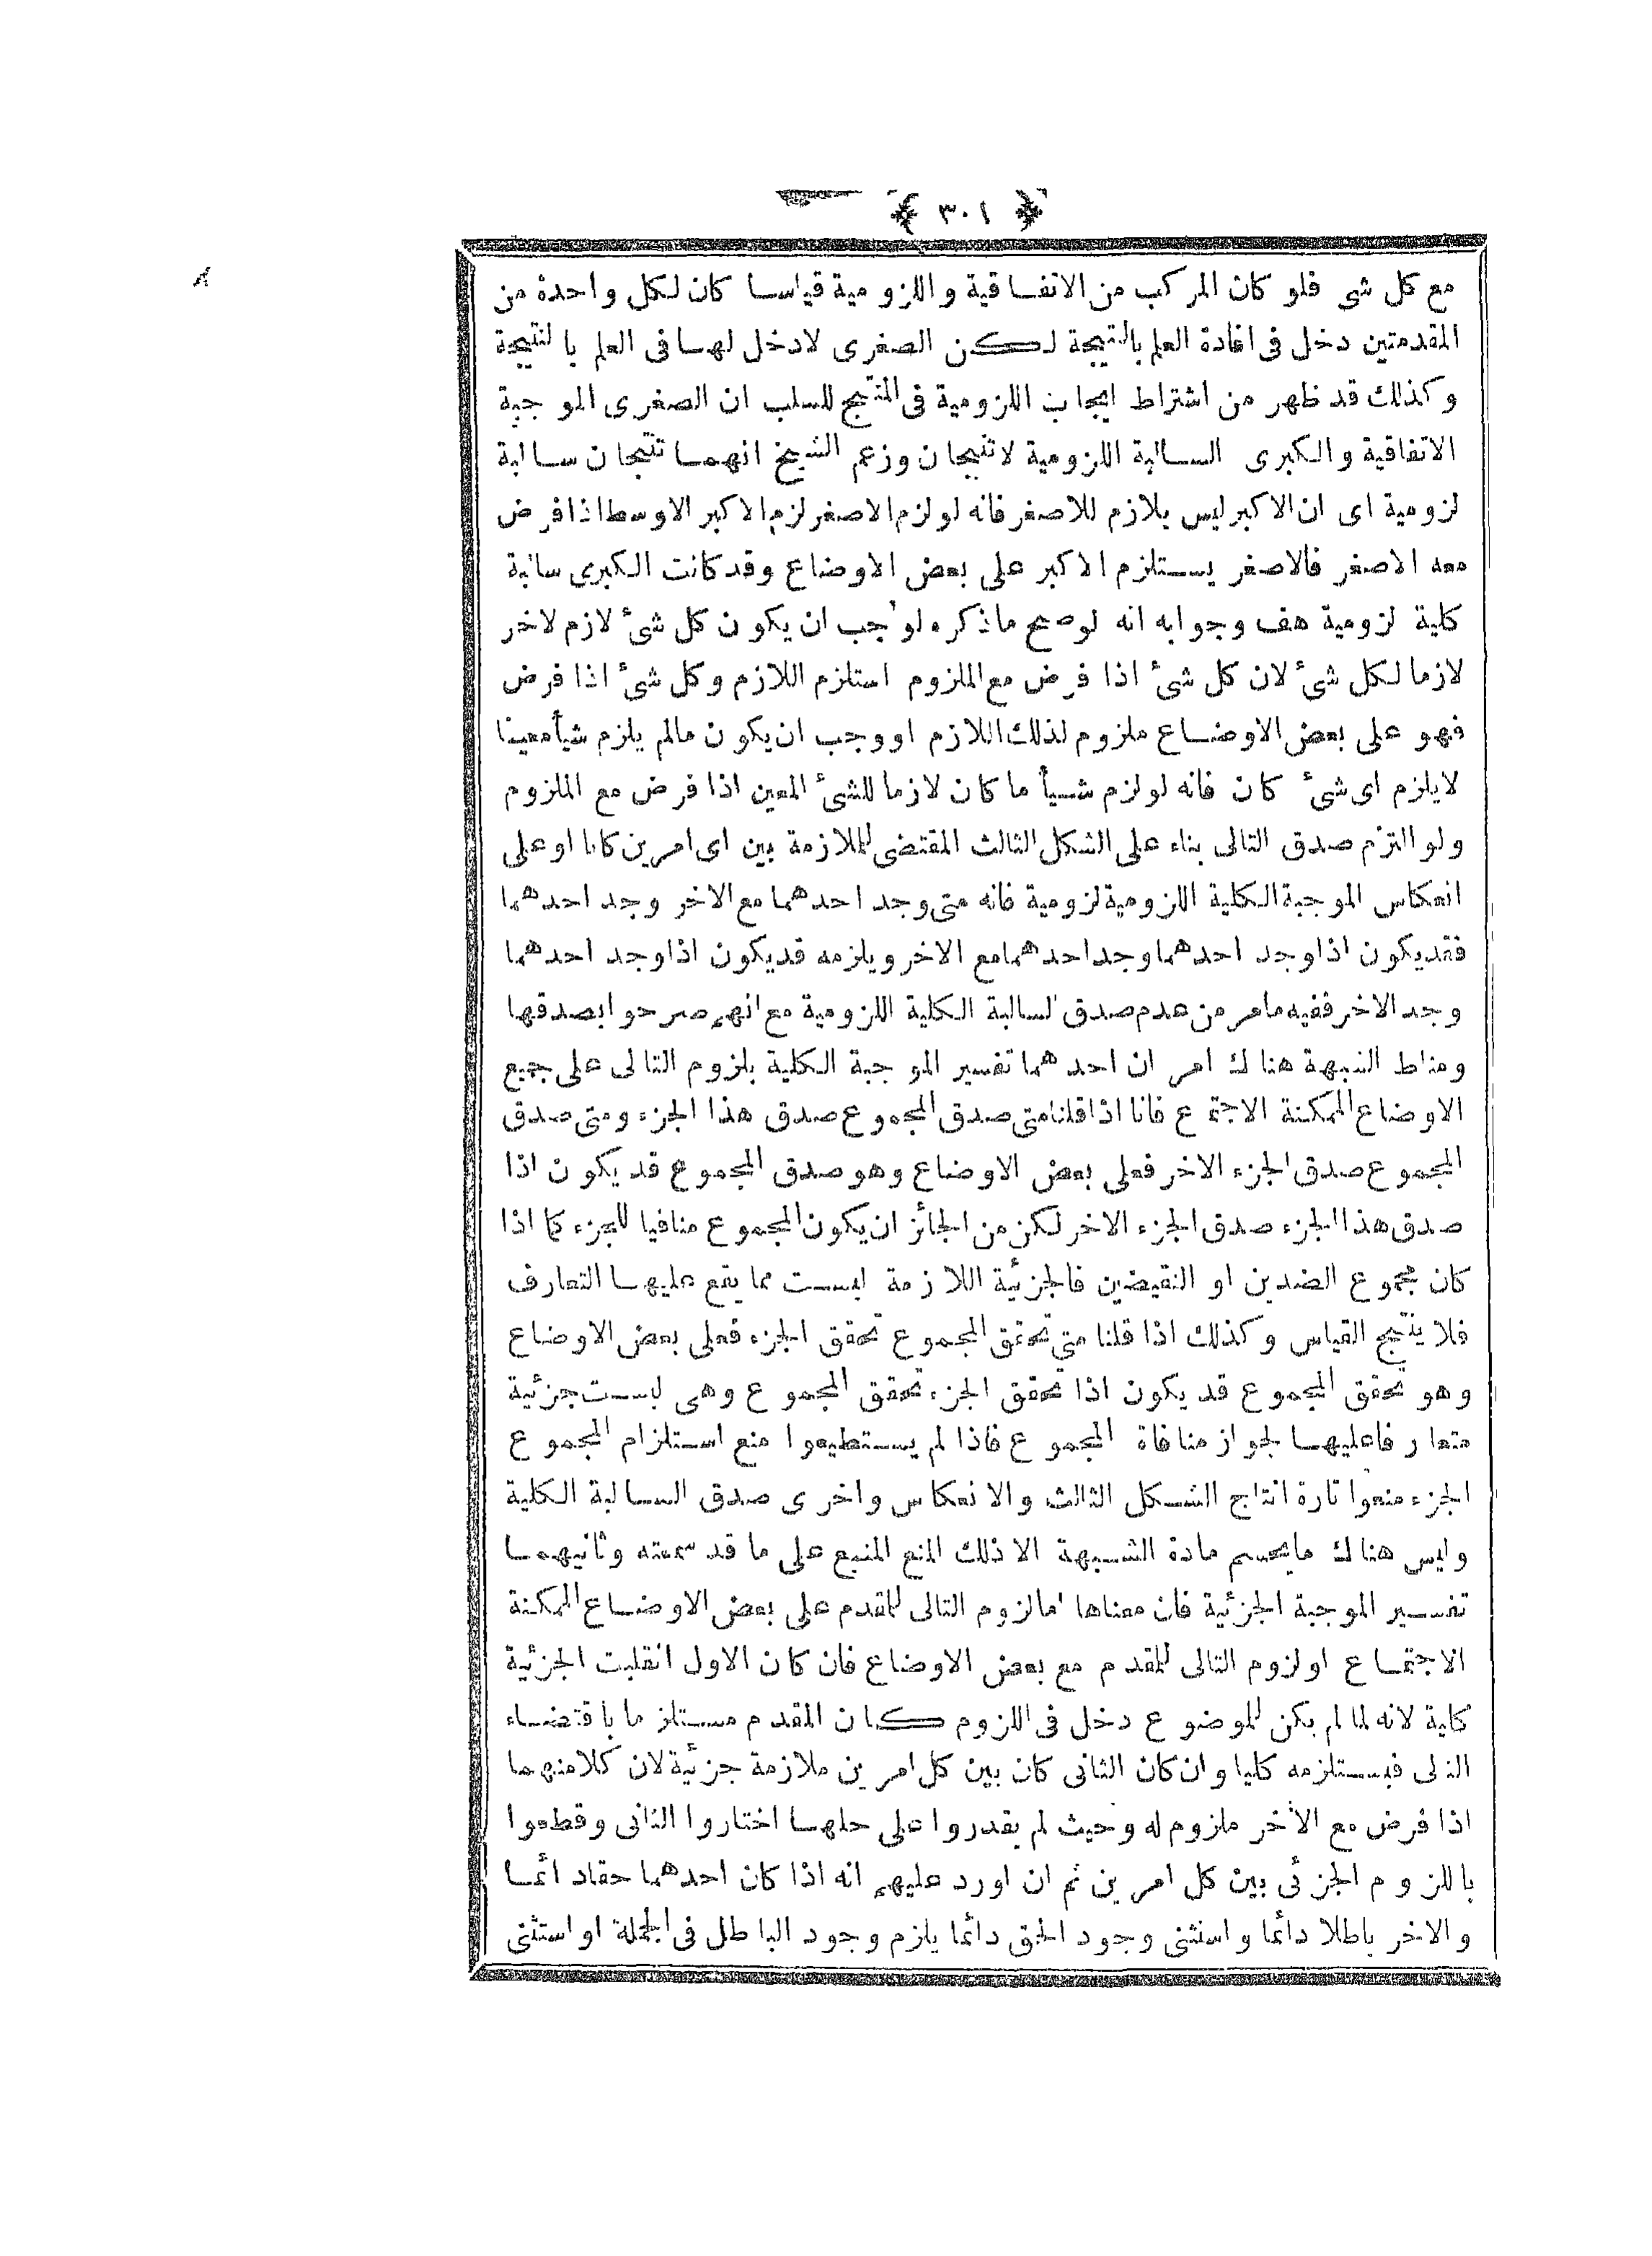 ﴿ ٣٠١ ﴾
مع كل شى فلو كان المركب من الاتفاقية واللزومية قياسا كان لكل واحدة من
المقدمتين دخل فى افادة العلم بالنتيجة لكن الصغرى لادخل لها فى العلم بالنتيجة
وكذلك قد ظهر من اشتراط ايجاب اللزومية فى المنتج للسلب ان الصغرى الموجبة
الاتفاقية والكبرى السالبة اللزومية لاتنتجان وزعم الشيخ انهما تنتجان سالبة
لزومية اى ان الاكبر ليس بلازم للاصغر فانه لو لزم الاصغر لزم الاكبر الاوسط اذا فرض
معه الاصغر فالاصغر يستلزم الاكبر على بعض الاوضاع وقد كانت الكبرى سالبة
كلية لزومية هف وجوابه انه لو صح ماذكره لوجب ان يكون كل شئ لازم لاخر
لازما لكل شئ لان كل شئ اذا فرض مع الملزوم استلزم اللازم وكل شئ اذا فرض
فهو على بعض الاوضاع ملزوم لذلك اللازم او وجب ان يكون مالم يلزم شيأ معينا
لايلزم اى شئ كان فانه لو لزم شيأ ما كان لازما للشئ المعين اذا فرض مع الملزوم
ولو التزم صدق التالى بناء على الشكل الثالث المقتضى للملازمة بين اى امرين كانا او على
انعكاس الموجبة الكلية اللزومية لزومية فانه متى وجد احدهما مع الاخر وجد احدهما
فقد يكون اذا وجد احدهما وجد احدهما مع الاخر ويلزمه قد يكون اذا وجد احدهما
وجد الاخر ففيه مامر من عدم صدق السالبة الكلية اللزومية مع انهم صرحوا بصدقها
ومناط الشبهة هناك امران احدهما تفسير الموجبة الكلية بلزوم التالى على جميع
الاوضاع الممكنة الاجتماع فانا اذا قلنا متى صدق المجموع صدق هذا الجزء ومتى صدق
المجموع صدق الجزء الاخر فعلى بعض الاوضاع وهو صدق المجموع قد يكون اذا
صدق هذا الجزء صدق الجزء الاخر لكن من الجائز ان يكون المجموع منافيا للجزء كما اذا
كان مجموع الضدين او النقيضين فالجزئية اللازمة ليست مما يقع عليها التعارف
فلا ينتج القياس وكذلك اذا قلنا متى تحقق المجموع تحقق الجزء فعلى بعض الاوضاع
وهو تحقق المجموع قد يكون اذا تحقق الجزء تحقق المجموع وهى ليست جزئية
متعارفا عليها لجواز منافاة المجموع فاذا لم يستطيعوا منع استلزام المجموع
الجزء منعوا تارة انتاج الشكل الثالث والانعكاس واخرى صدق السالبة الكلية
وليس هناك مايحسم مادة الشبهة الا ذلك المنع المنبع على ما قد سمعته وثانيهما
تفسير الموجبة الجزئية فان معناها امالزوم التالى للمقدم على بعض الاوضاع الممكنة
الاجتماع او لزوم التالى للمقدم مع بعض الاوضاع فان كان الاول انقلبت الجزئية
كلية لانه لما لم يكن للموضوع دخل فى اللزوم كان المقدم مستلزما باقتضاء
التالى فيستلزمه كليا وان كان الثانى كان بين كل امرين ملازمة جزئية لان كلا منهما
اذا فرض مع الآخر ملزوم له وحيث لم يقدروا على حلها اختاروا الثانى وقطعوا
باللزوم الجزئى بين كل امرين ثم ان اورد عليهم انه اذا كان احدهما حقا دائما
والاخر باطلا دائما واستثنى وجود الحق دائما يلزم وجود الباطل فى الجملة او استثنى